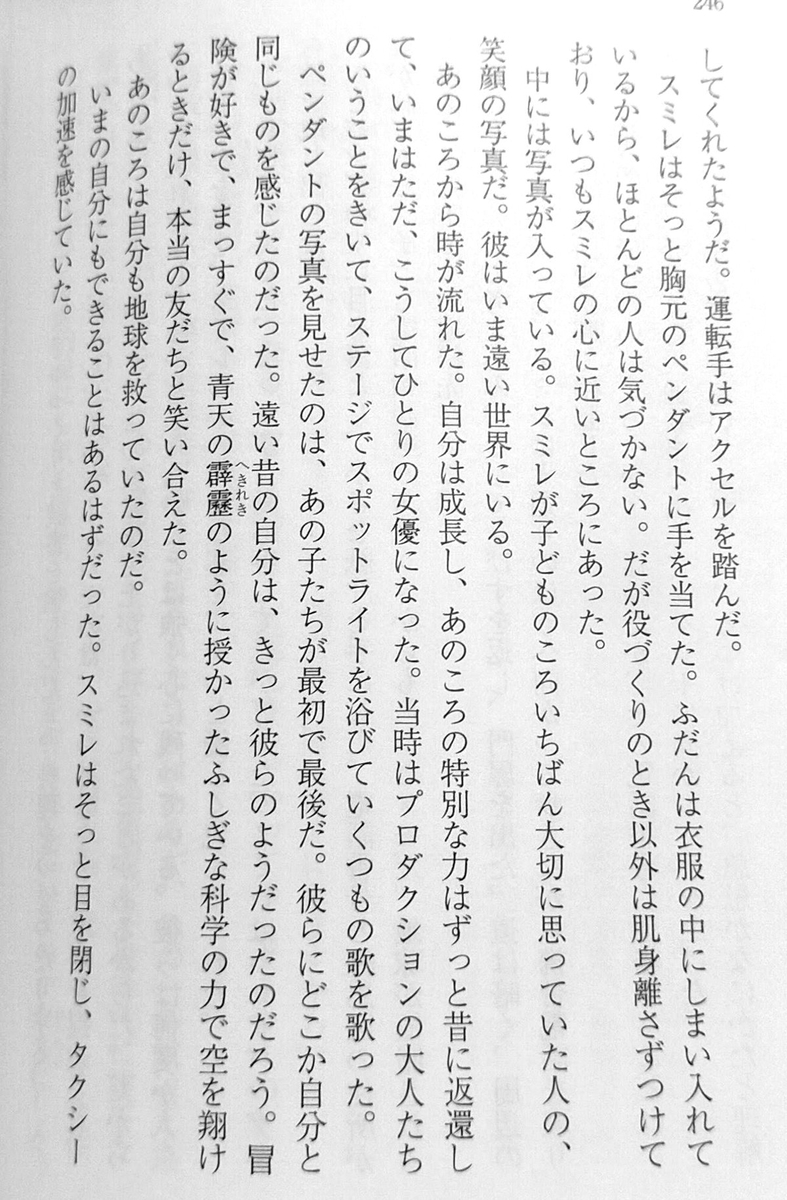 246
してくれたようだ。運転手はアクセルを踏んだ。
スミレはそっと胸元のペンダントに手を当てた。ふだんは衣服の中にしまい入れて
いるから、ほとんどの人は気づかない。だが役づくりのとき以外は肌身離さずつけて
おり、いつもスミレの心に近いところにあった。
中には写真が入っている。スミレが子どものころいちばん大切に思っていた人の、
笑顔の写真だ。彼はいま遠い世界にいる。
あのころから時が流れた。自分は成長し、あのころの特別な力はずっと昔に返還し
て、いまはただ、こうしてひとりの女優になった。当時はプロダクションの大人たち
のいうことをきいて、ステージでスポットライトを浴びていくつもの歌を歌った。
ペンダントの写真を見せたのは、あの子たちが最初で最後だ。彼らにどこか自分と
同じものを感じたのだった。遠い昔の自分は、きっと彼らのようだったのだろう。冒
険が好きで、まっすぐで、青天の霹靂へきれきのように授かったふしぎな科学の力で空を翔け
るときだけ、本当の友だちと笑い合えた。
あのころは自分も地球を救っていたのだ。
いまの自分にもできることはあるはずだった。スミレはそっと目を閉じ、タクシー
の加速を感じていた。